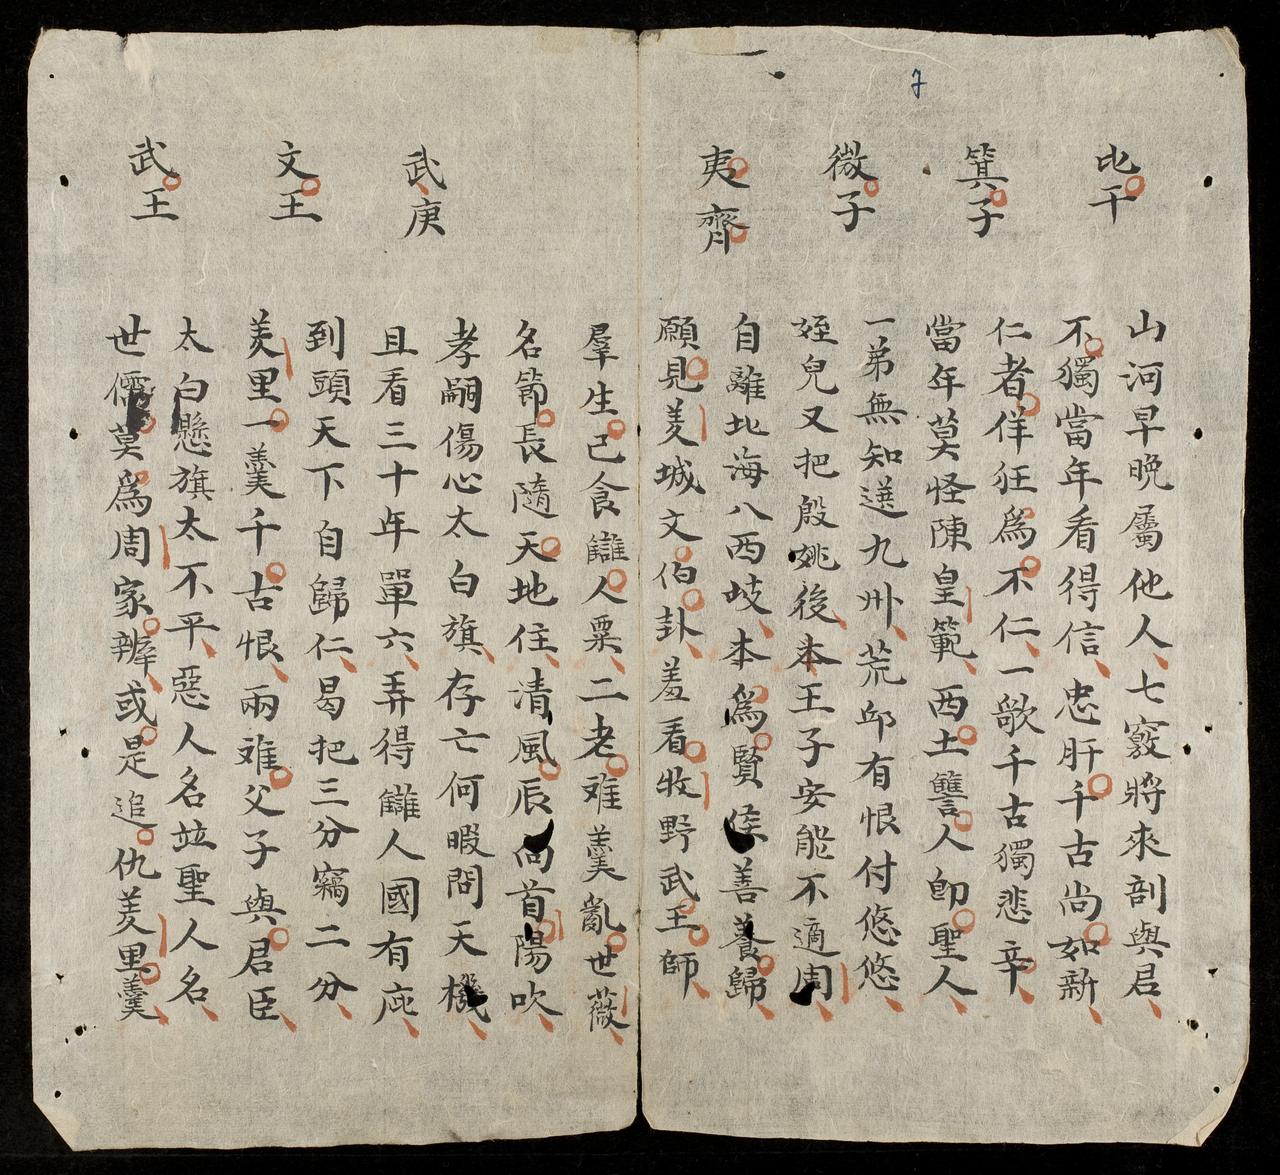 比干
山河早晚屬他人七竅將來剖與君
不獨當年看得信忠肝千古尚如新
箕子
仁者佯狂爲不仁一歌千古獨悲辛
當年莫怪陳皇範西土讐人卽聖人
微子
一弟無知送九州荒邱有恨付悠悠
姪兒又把殷姚後本王子安能不適周
夷齊
自離北海八西岐本爲賢侯善養歸
願見羑城文伯卦羞看牧野武王師
羣生已食讎人粟二老难羹亂世薇
名節長隨天地住清風辰向首陽吹
武庚
孝嗣傷心太白旗存亡何暇問天機
且看三十年單六弄得讎人國有庇
文王
到頭天下自歸仁曷把三分竊二分
羑里一羹千古恨兩难父子與君臣
武王
太白懸旗太不平惡人名竝聖人名
世儒莫爲周家辨或是追仇羑里羹